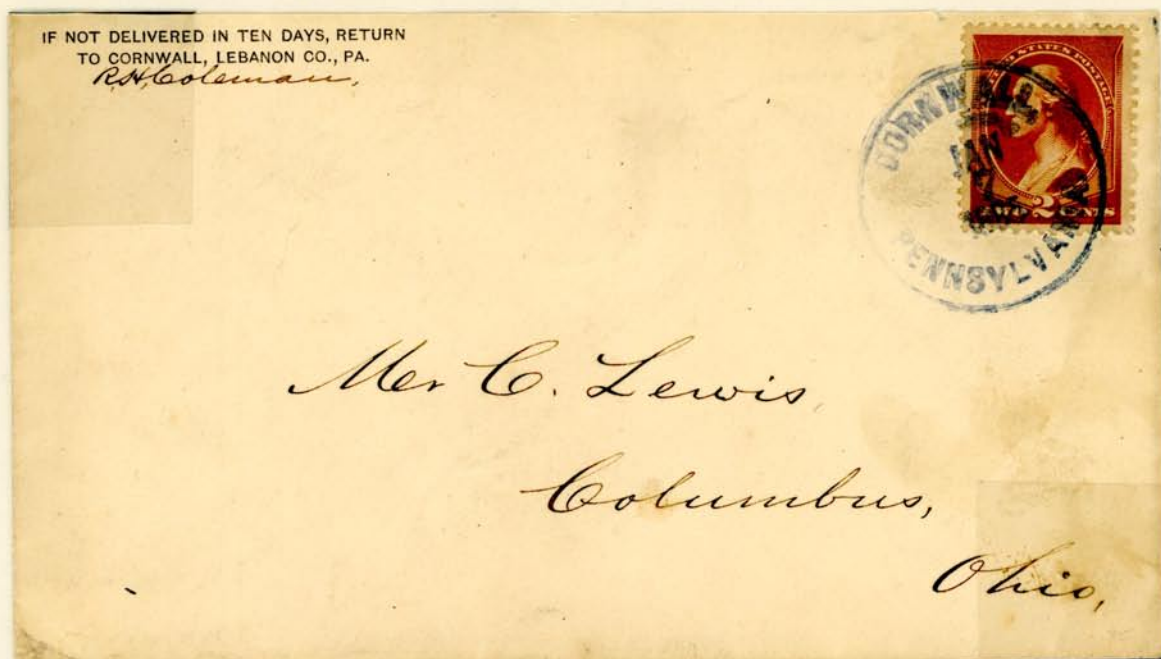 IF NOT DELIVERED IN TEN DAYS, RETURN
TO CORNWALL, LEBANON CO., PA.
R.H. Coleman,
UNITED STATES POSTAGE
TWO 2 CENTS
CORNWALL
JAN
PENNSYLVANIA
Mr C. Lewis,
Columbus,
Ohio,